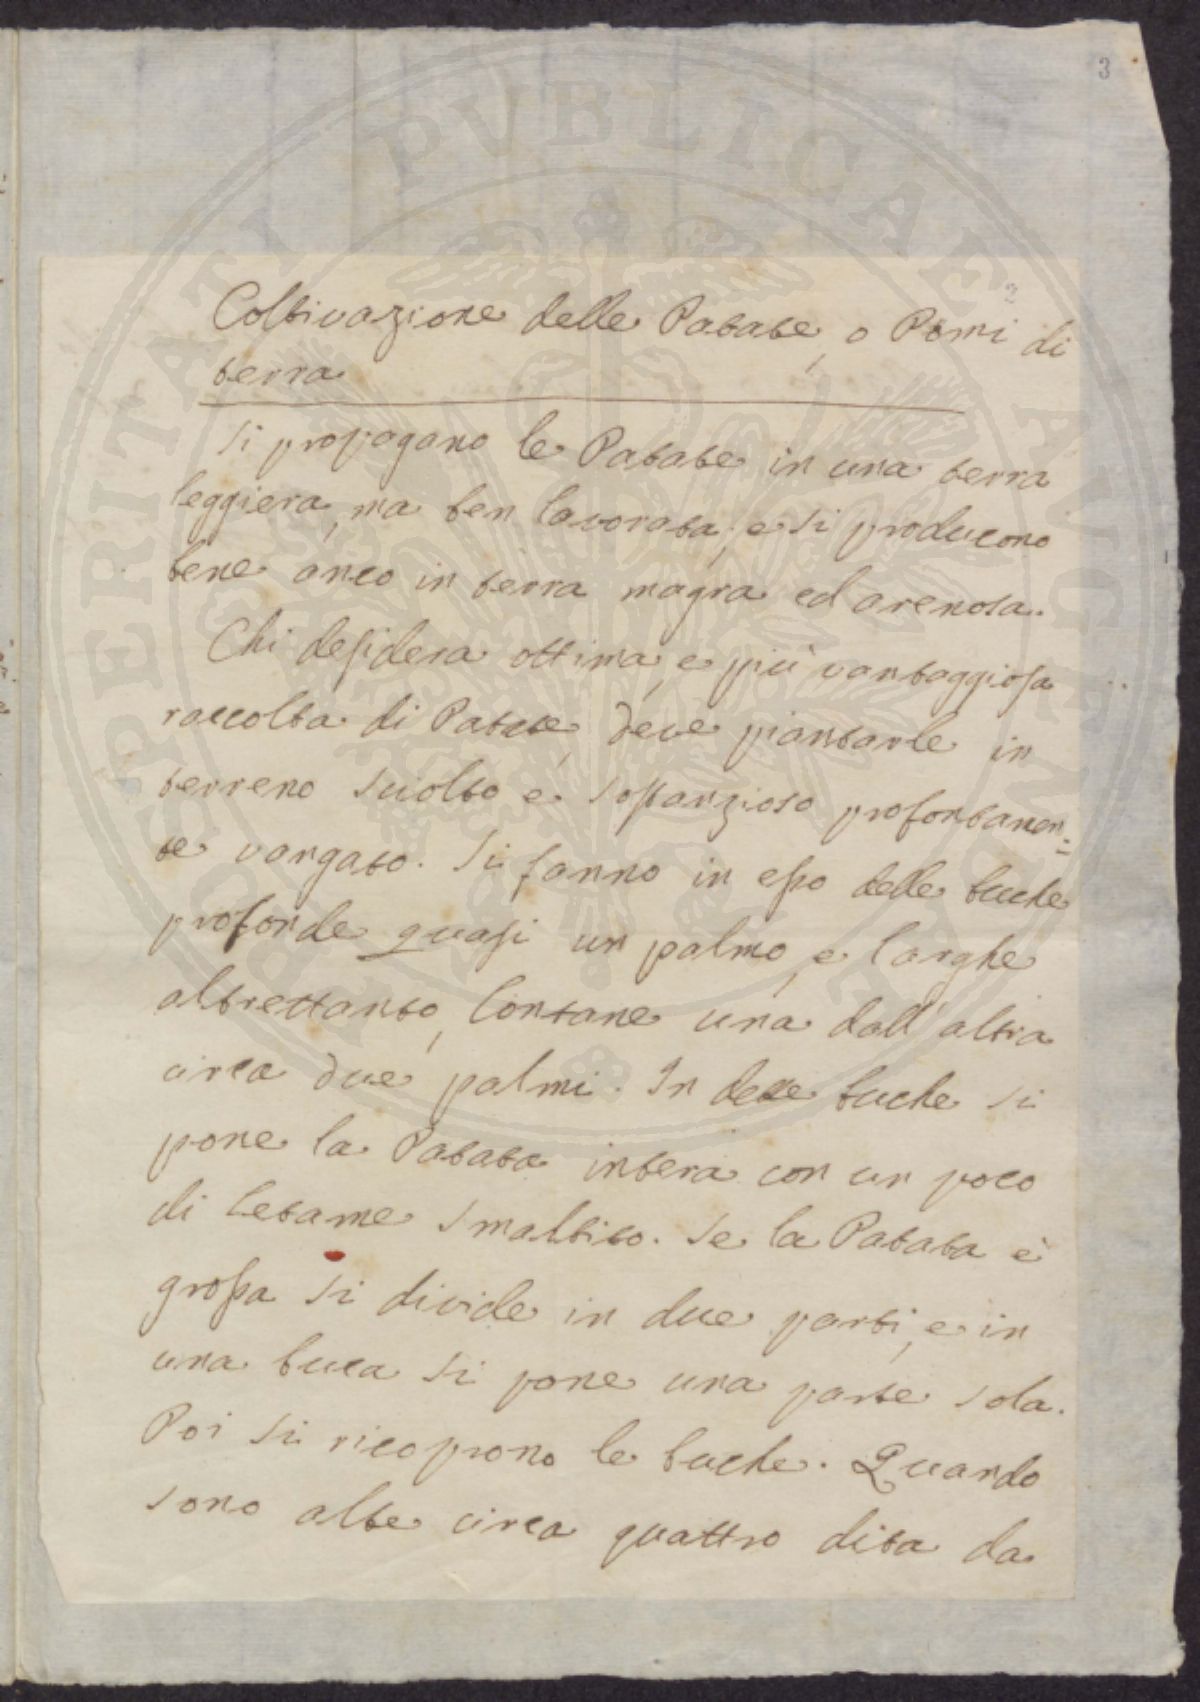 3
2
Coltivazione delle Patate, o Pomi di
terra
Si propagano le Patate in una terra
leggiera, ma ben lavorata, e si producono
bene anco in terra magra ed arenosa.
Chi desidera ottima, e più vantaggiosa
raccolta di Patate, deve piantarle in
terreno sciolto e sostanzioso profontamen=
te vangato. Si fanno in esso delle buche
profonde quasi un palmo, e larghe
altrettanto, lontane una dall'altra
circa due palmi. In dette buche si
pone la Patata intera con un poco
di letame smaltito. Se la Patata è
grossa si divide in due parti, e in
una buca si pone una parte sola.
Poi si ricoprono le buche. Quando
sono alte circa quattro dita da
PVBLICAE
PROSPERITATI
AVGENDAE